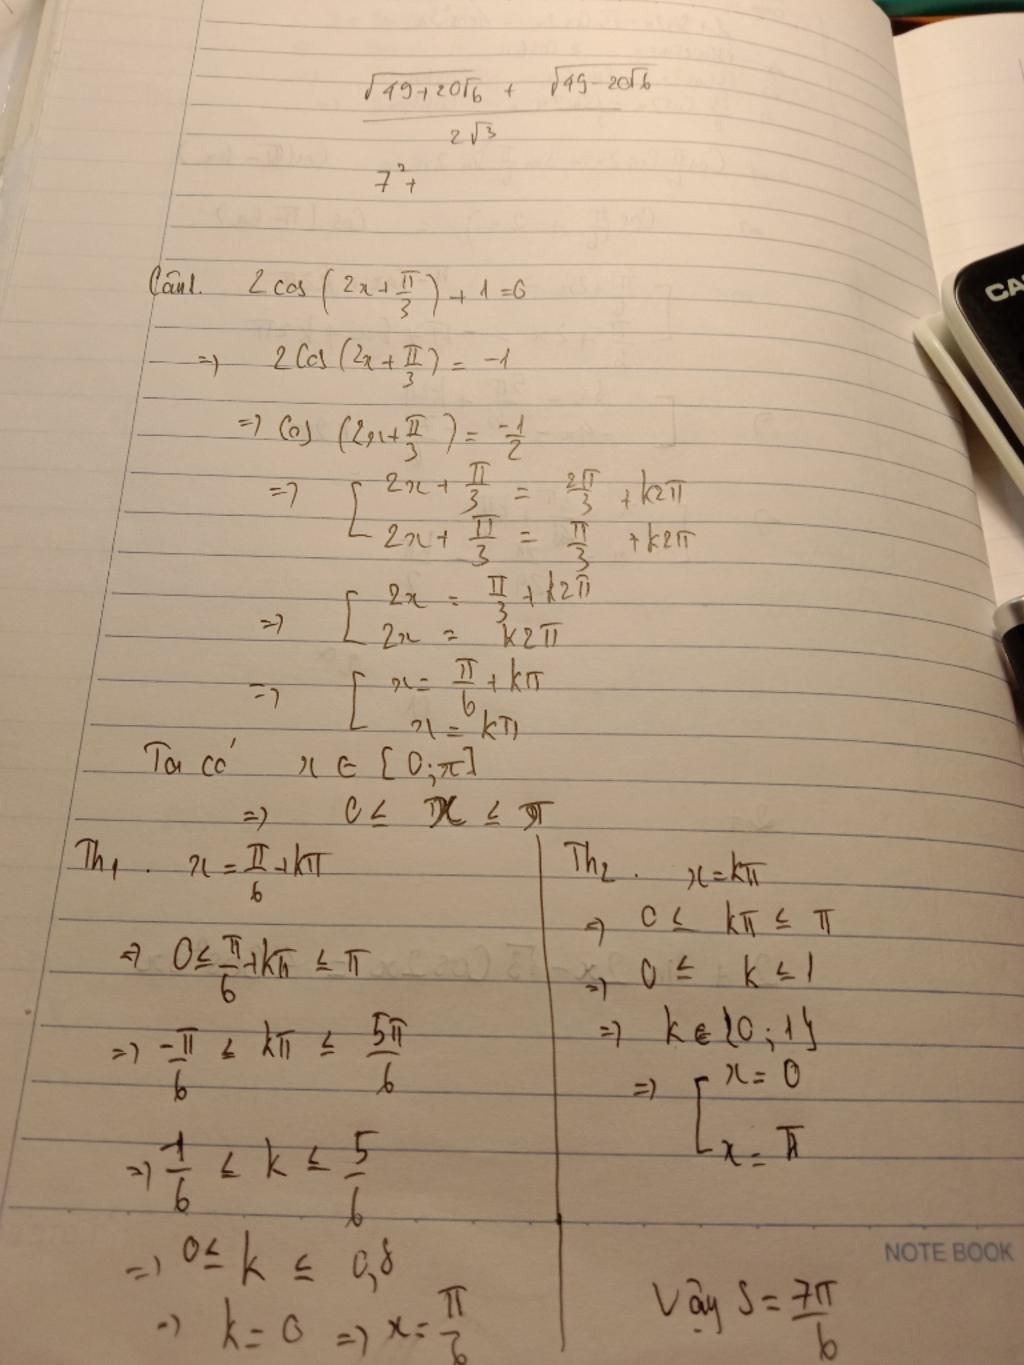 √49+20√6 + √49-20√6
2√3
7² +
Câu1. 2cos(2x+π/3)+1=0
=> 2Cos(2x+π/3) = -1
=> Cos (2x+π/3) = -1/2
=> [ 2x + π/3 = 2π/3 + k2π
2x + π/3 = π/3 + k2π
=> [ 2x = π/3 + k2π
2x = k2π
=> [ x = π/6 + kπ
x = kπ
Ta có x ∈ [0;π]
=> 0 ≤ x ≤ π
Th1. x = π/6 + kπ
=> 0 ≤ π/6 + kπ ≤ π
=> -π/6 ≤ kπ ≤ 5π/6
=> -1/6 ≤ k ≤ 5/6
=> 0 ≤ k ≤ 0,8
=> k = 0 => x = π/6
Th2. x = kπ
=> 0 ≤ kπ ≤ π
=> 0 ≤ k ≤ 1
=> k ∈ {0;1}
=> [ x = 0
x = π
Vậy S = 7π/6
NOTE BOOK
CA